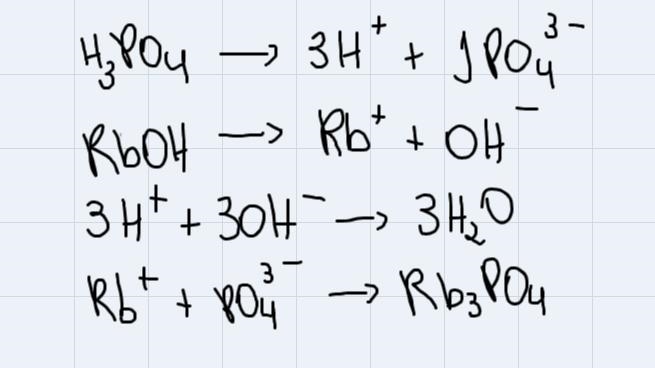 H₃PO₄ → 3H⁺ + 1PO₄³⁻
RbOH → Rb⁺ + OH⁻
3H⁺ + 3OH⁻ → 3H₂O
Rb⁺ + PO₄³⁻ → Rb₃PO₄